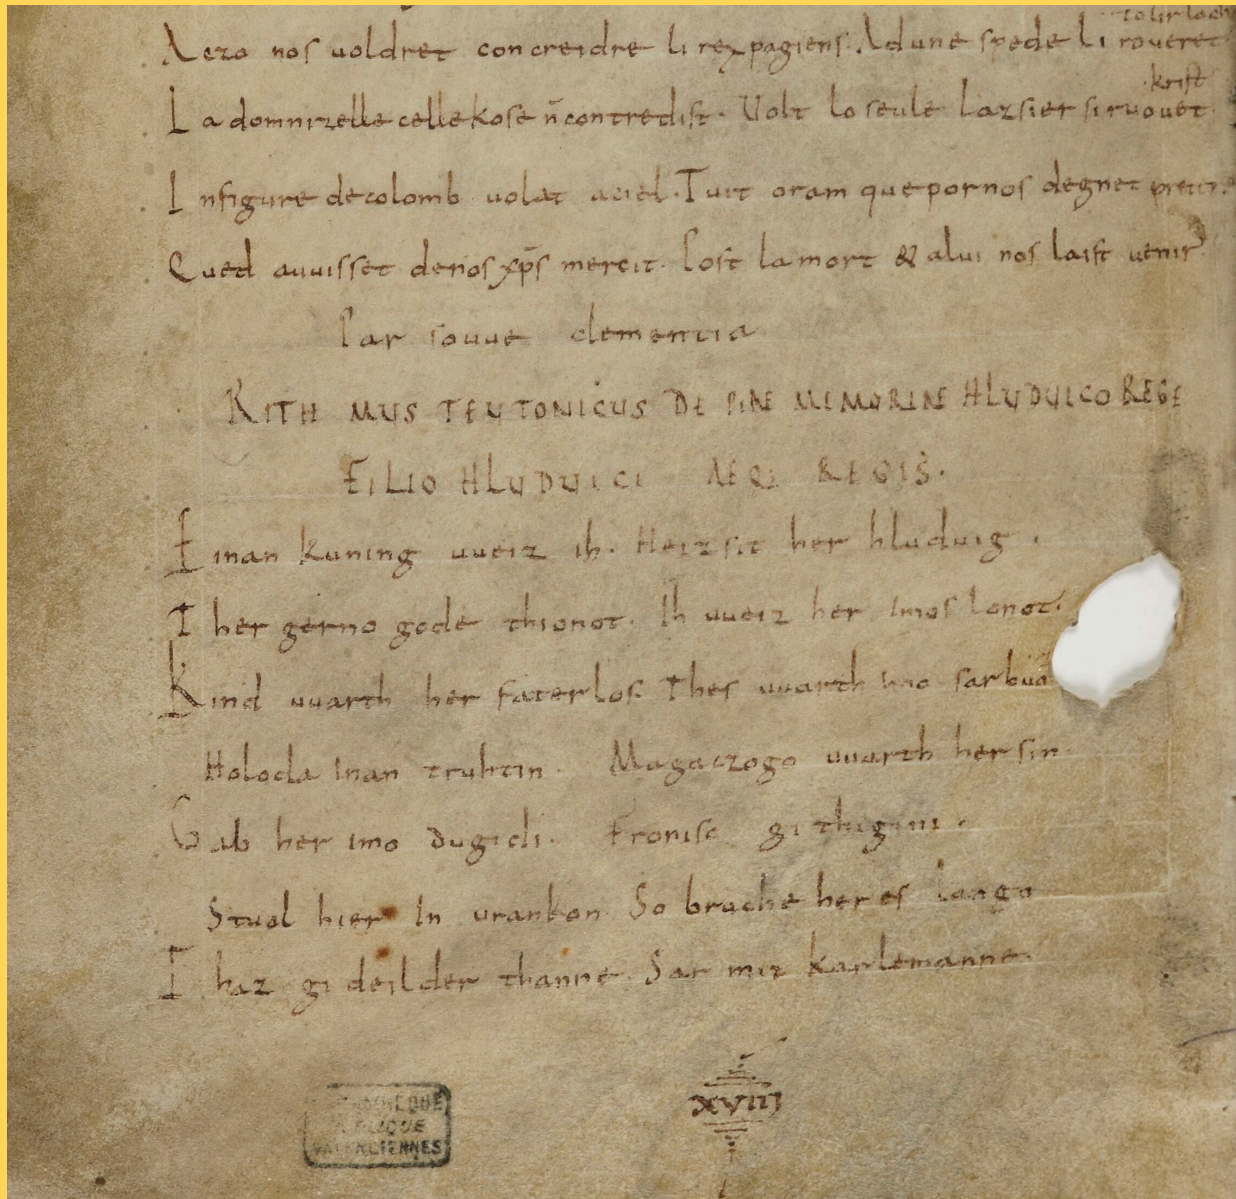 tolir lo chief
A czo nos voldret concreidre li rex pagiens. Ad une spede li roveret
krist
L a domnizelle celle kose n̄ contredist. Volt lo seule lazsier si ruovet
I n figure de colomb volat a ciel. Tuit oram que por nos degnet preier.
Q ued auuisset de nos xp̄s mercit. Post la mort & a lui nos laist venir
Par souue clementia
RITHMUS TEUTONICUS DE PIAE MEMORIAE HLUDUICO REGE
FILIO HLUDUICI AEQ; REGIS.
E inan kuning uueiz ih. Heizsit her hluduig.
I her gerno gode thionot. Ih uueiz her imos lonot.
K ind uuarth her faterlos. Thes uuarth imo sar buā
Holoda inan truhtin. Magaczogo uuarth her sin.
G ab her imo dugidi. Fronisc githigini.
Stual hier in urankon. So bruche her es lango
T haz gideilder thanne. Sar mit karlemanne.
xviij
BIBLIOTHEQUE
PUBLIQUE
VALENCIENNES